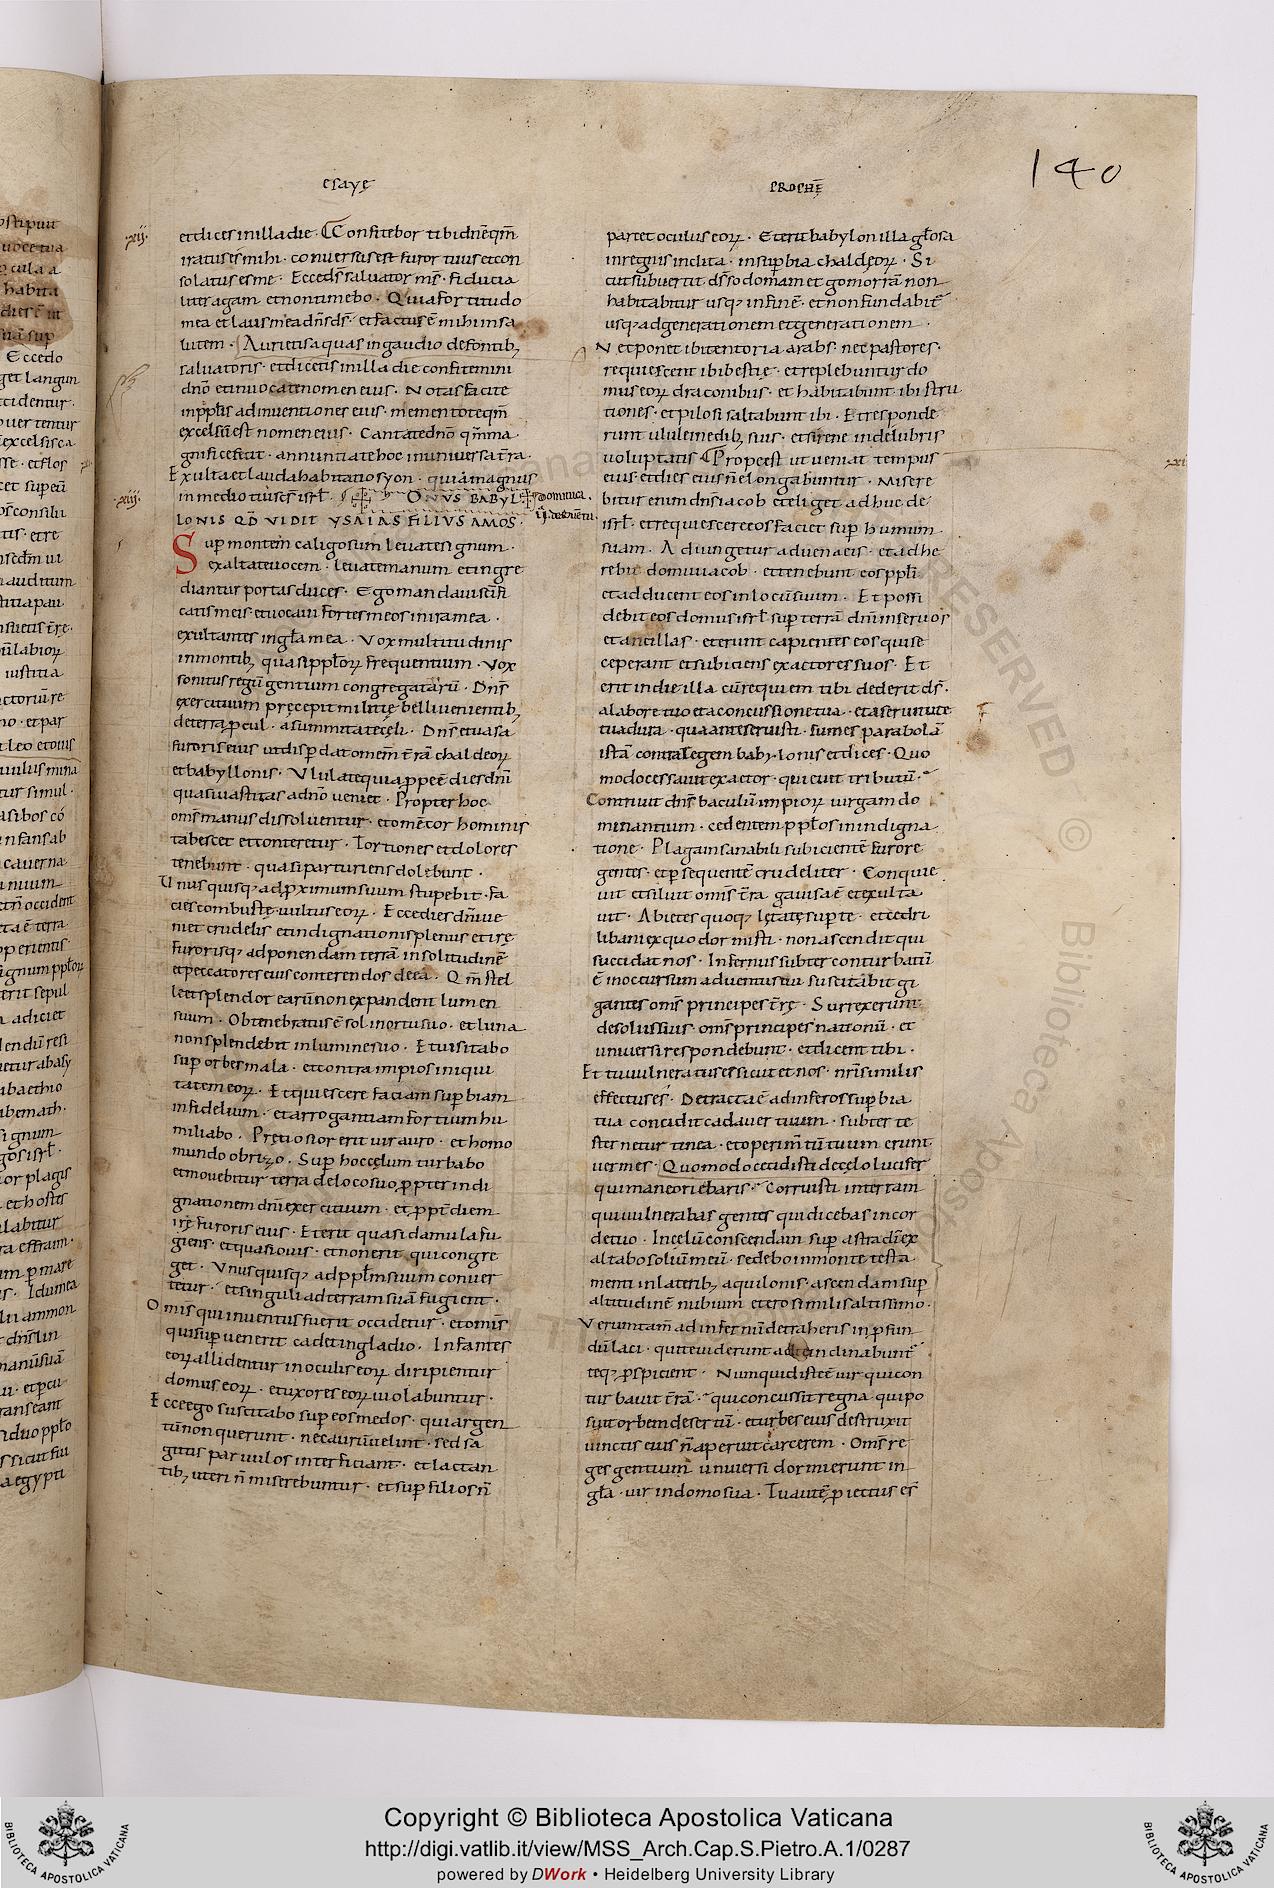 140
esayę
ꝓphē
xii.
et dices in illa die. Confitebor tibi dnē qm̄
iratus es mihi. conuersus est furor tuus et con
solatus es me. Ecce ds̄ saluator ms̄. fiducia
liter agam et non timebo. Quia fortitudo
mea et laus mea dn̄s ds̄. et factus ē mihi in sa
lutem. Aurietis aquas in gaudio de fontib;
saluatoris. et dicetis in illa die confitemini
dn̄o et inuocate nomen eius. Notas facite
in pplis adinuentiones eius. mementote qm̄
excelsū est nomen eius. Cantate dn̄o qm̄ ma
gnifice fecit. annuntiate hoc in uniuersa t̄ra.
Exulta et lauda habitatio syon. quia magnus
xiii.
in medio tui scs̄ isrl̄. ONVS BABYL
LONIS QD̄ VIDIT YSAIAS FILIVS AMOS.
Sup montem caligosum leuate signum.
exaltate uocem. leuate manum et ingre
diantur portas duces. Ego mandaui sc̄ifi
catis meis et uocaui fortes meos in ira mea.
exultantes in gl̄a mea. Vox multitudinis
in montib; quasi pplōꝝ frequentium. Vox
sonitus regū gentium congregatarū. Dn̄s
exercituum pręcepit militię belli uenientib;
de terra ꝓcul. a summitate cęli. Dn̄s et uasa
furoris eius ut disperdat omem̄ t̄rā chaldeoꝝ
et babyllonis. Vlulate quia ꝓpe ē dies dn̄i
quasi uastitas a dn̄o ueniet. Propter hoc
om̄s manus dissoluentur. et om̄e cor hominis
tabescet et conteretur. Tortiones et dolores
tenebunt. quasi parturiens dolebunt.
Vnus quisq; ad ꝓximum suum stupebit. fa
cies combustę uultus eoꝝ. Ecce dies dn̄i ue
niet crudelis et indignationis plenus et irę
furorisq; ad ponendam terrā in solitudinē
et peccatores eius conterendos de ea. Qm̄ stel
lę et splendor earū non expandent lumen
suum. Obtenebratus ē sol in ortu suo. et luna
non splendebit in lumine suo. Et uisitabo
sup orbes mala. et contra impios iniqui
tatem eoꝝ. Et quiescere faciam supbiam
infidelium. et arrogantiam fortium hu
miliabo. Pretiosior erit uir auro. et homo
mundo obrizo. Sup hoc cęlum turbabo
et mouebitur terra de loco suo ꝓpter indi
gnationem dn̄i exercituum. et ꝓpt̄ diem
irę furoris eius. Et erit quasi damula fu
giens. et quasi ouis. et non erit qui congre
get. Vnusquisq; ad pplm̄ suum conuer
tetur. et singuli ad terram suā fugient.
Omīs qui inuentus fuerit occidetur. et omīs
qui supuenerit cadet in gladio. Infantes
eoꝝ allidentur in oculis eoꝝ diripientur
domus eoꝝ. et uxores eoꝝ uiolabuntur.
Ecce ego suscitabo sup eos medos. qui argen
tū non querunt. nec aurū uelint. sed sa
gittis paruulos interficiant. et lactan
tib; uteri n̄ miserebuntur. et sup filios n̄
partet oculus eoꝝ. Et erit babylon illa gl̄osa
in regnis inclita. in supbia chaldęoꝝ. Si
cut subuertit ds̄ sodomam et gomorrā non
habitabitur usq; in finē. et non fundabit̄
usq; ad generationem et generationem.
Nec ponet ibi tentoria arabs. nec pastores.
requiescent ibi bestię. et replebuntur do
mus eoꝝ draconibus. et habitabunt ibi stru
tiones. et pilosi saltabunt ibi. Et responde
runt ulule in edib; suis. et sirene in delubris
uoluptatis. Prope est ut ueniat tempus
eius. et dies eius n̄ elongabuntur. Misere
bitur enim dn̄s iacob et eliget adhuc de
isrl̄. et requiescere eos faciet sup humum
suam. Adiungetur aduena eis. et adhe
rebit domui iacob. et tenebunt eos ppl̄i
et adducent eos in locū suum. Et possi
debit eos domus isrl̄ sup terrā dn̄i in seruos
et ancillas. et erunt capientes eos qui se
ceperant et subiciens exactores suos. Et
erit in die illa cū requiem tibi dederit ds̄.
a labore tuo et a concussione tua. et a seruitute
tua dura. qua ante seruisti. sumes parabolā
istā contra regem babylonis et dices. Quo
modo cessauit exactor. quieuit tributū.
Contriuit dn̄s baculū impioꝝ uirgam do
minantium. cedentem pplos in indigna
tione. Plaga insanabili subicientē furore
gentes. et psequentē crudeliter. Conquie
uit et siluit omīs t̄ra. gauisa ē et exulta
uit. Abietes quoq; lętatę sup te. et cedri
libani ex quo dormisti. non ascendit qui
succidat nos. Infernus subter conturbatū
ē in occursum aduentus tui suscitabit gi
gantes oms̄ principes t̄rę. Surrexerunt
de soliis suis. oms̄ principes nationū. et
uniuersi respondebunt. et dicent tibi.
Et tu uulneratus es sicut et nos. nr̄i similis
effectus es. Detracta ē ad inferos supbia
tua concidit cadauer tuum. subter te
sternetur tinea. et operim̄tū tuum erunt
uermes. Quomodo cecidisti de cęlo lucifer
qui mane oriebaris. Corruisti in terram
qui uulnerabas gentes qui dicebas in cor
de tuo. In celū conscendam sup astra dī ex
altabo soliū meū. sedebo in monte testa
menti in laterib; aquilonis. ascendam sup
altitudinē nubium et ero similis altissimo.
Veruntam̄ ad infernū detraheris in ꝓfun
dū laci. qui te uiderunt ad te inclinabunt̄
teq; ꝓspicient. Numquid iste ē uir qui con
turbauit t̄rā. qui concussit regna. qui po
suit orbem desertū. et urbes eius destruxit
uinctis eius n̄ aperuit carcerem. Oms̄ re
ges gentium uniuersi dormierunt in
gl̄a. uir in domo sua. Tu autē ꝓiectus es
Copyright © Biblioteca Apostolica Vaticana
http://digi.vatlib.it/view/MSS_Arch.Cap.S.Pietro.A.1/0287
powered by DWork • Heidelberg University Library
BIBLIOTECA APOSTOLICA VATICANA
BIBLIOTECA APOSTOLICA VATICANA